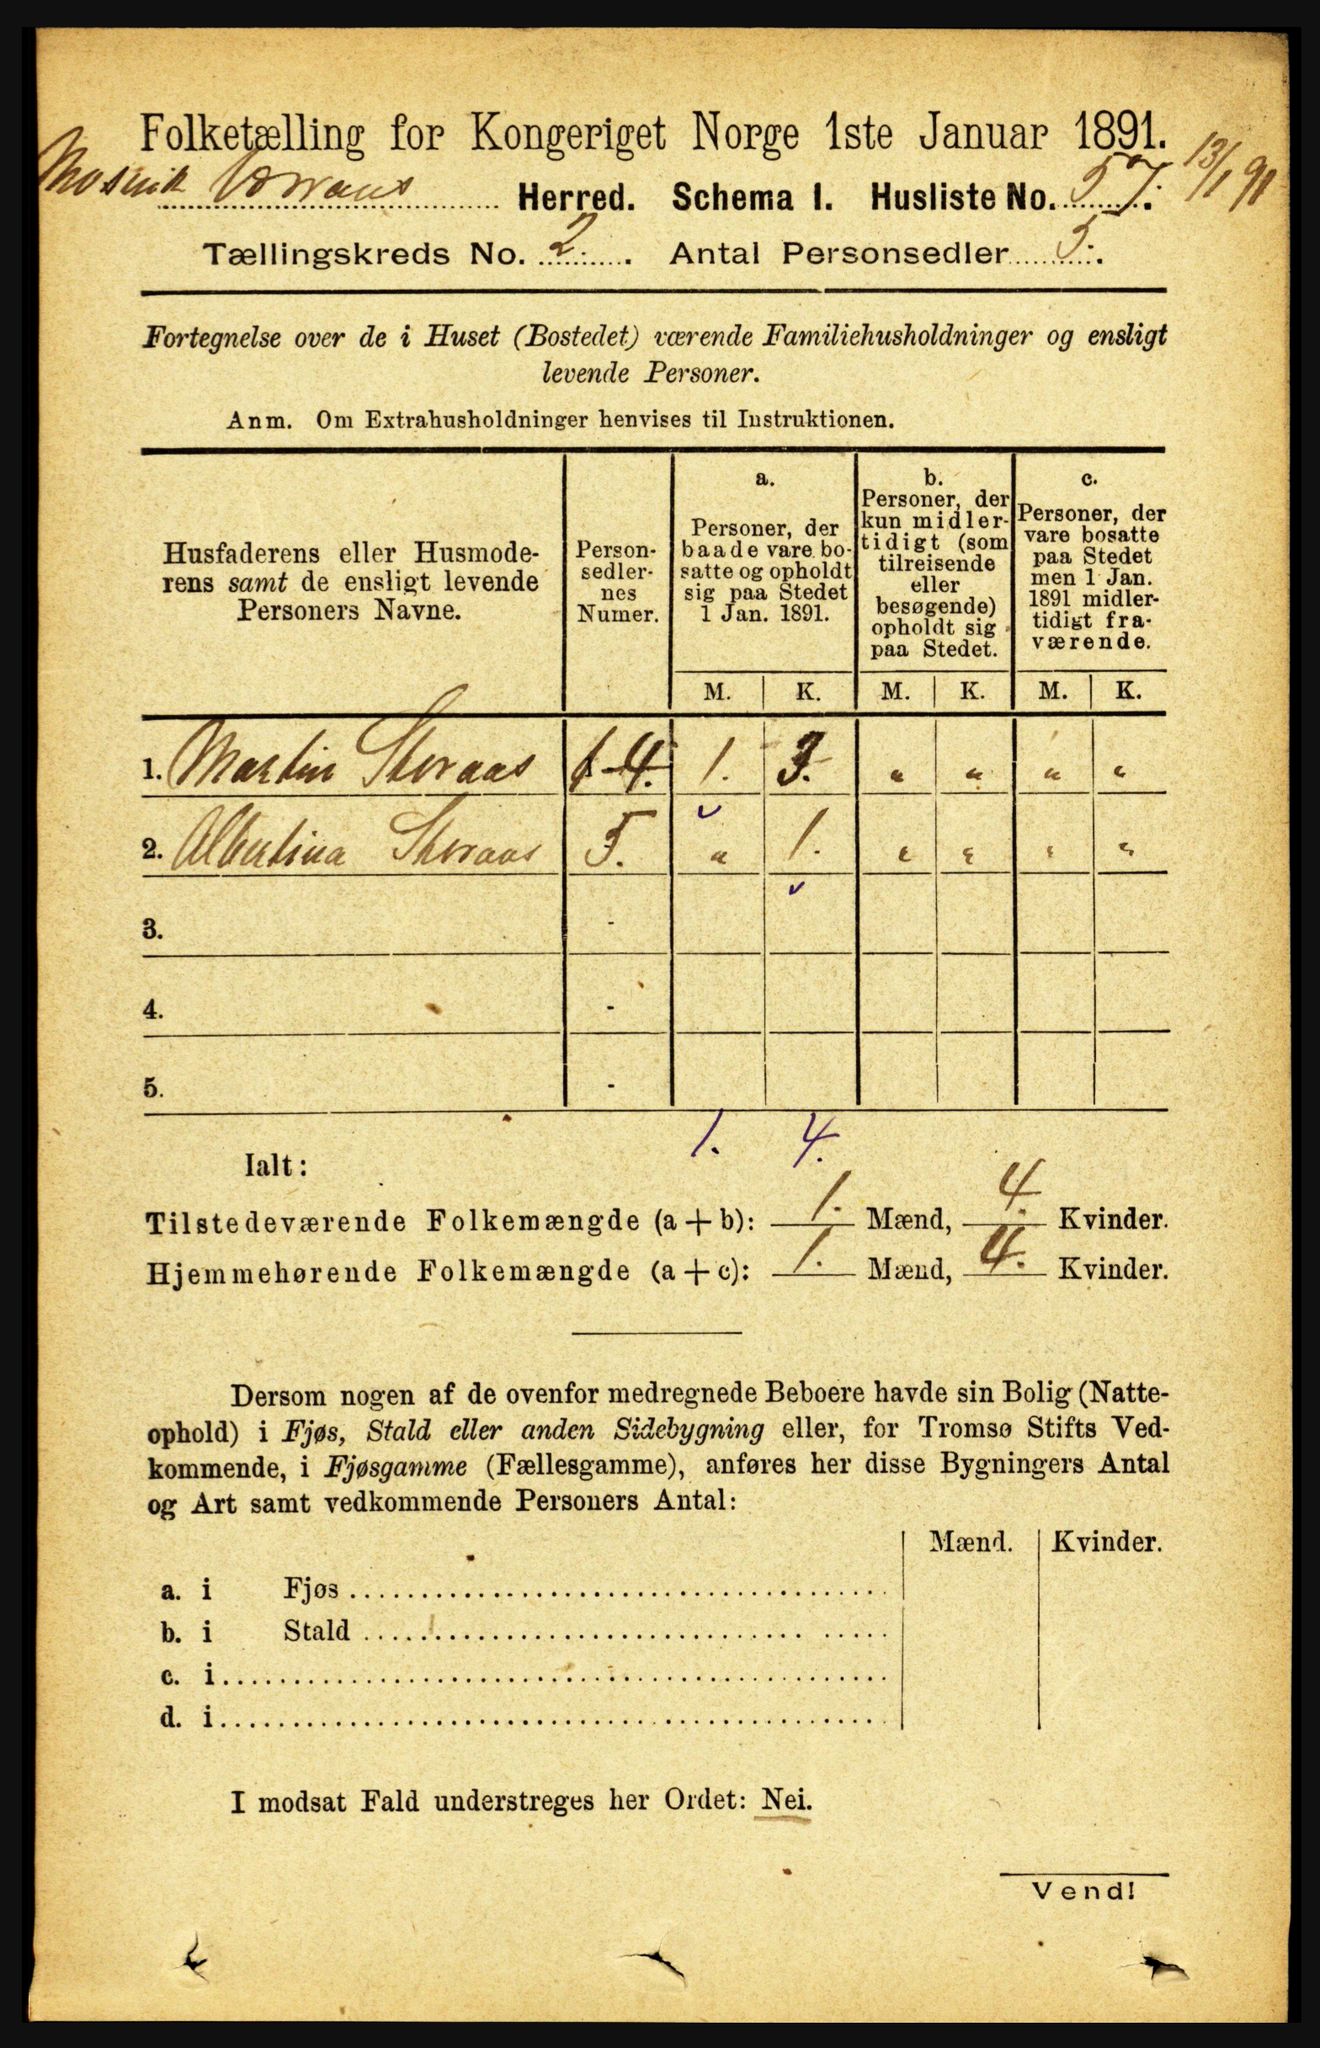 Folketælling for Kongeriget Norge 1ste Januar 1891.
Mosvik Værrans Herred. Schema 1. Husliste No. 57. 13/1 91
Tællingskreds No. 2. Antal Personsedler 5.
Fortegnelse over de i Huset (Bostedet) værende Familiehusholdninger og ensligt
levende Personer.
Anm. Om Extrahusholdninger henvises til Instruktionen.
Husfaderens eller Husmode-
rens samt de ensligt levende
Personers Navne.
Person-
sedler-
nes
Numer.
a.
Personer, der
baade vare bo-
satte og opholdt
sig paa Stedet
1 Jan. 1891.
b.
Personer, der
kun midler-
tidigt (som
tilreisende
eller
besøgende)
opholdt sig
paa Stedet.
c.
Personer, der
vare bosatte
paa Stedet
men 1 Jan.
1891 midler-
tidigt fra-
værende.
M. K. M. K. M. K.
1. Martin Storaas 1-4. 1. 3. " " " "
2. Albertina Storaas 5. " 1. " " " "
3. -
4. -
5. -
1. 4.
Ialt:
Tilstedeværende Folkemængde (a + b): 1. Mænd, 4. Kvinder.
Hjemmehørende Folkemængde (a + c): 1. Mænd, 4. Kvinder.
Dersom nogen af de ovenfor medregnede Beboere havde sin Bolig (Natte-
ophold) i Fjøs, Stald eller anden Sidebygning eller, for Tromsø Stifts Ved-
kommende, i Fjøsgamme (Fællesgamme), anføres her disse Bygningers Antal
og Art samt vedkommende Personers Antal:
Mænd. Kvinder.
a. i Fjøs
b. i Stald
c. i
d. i
I modsat Fald understreges her Ordet: Nei.
Vend!